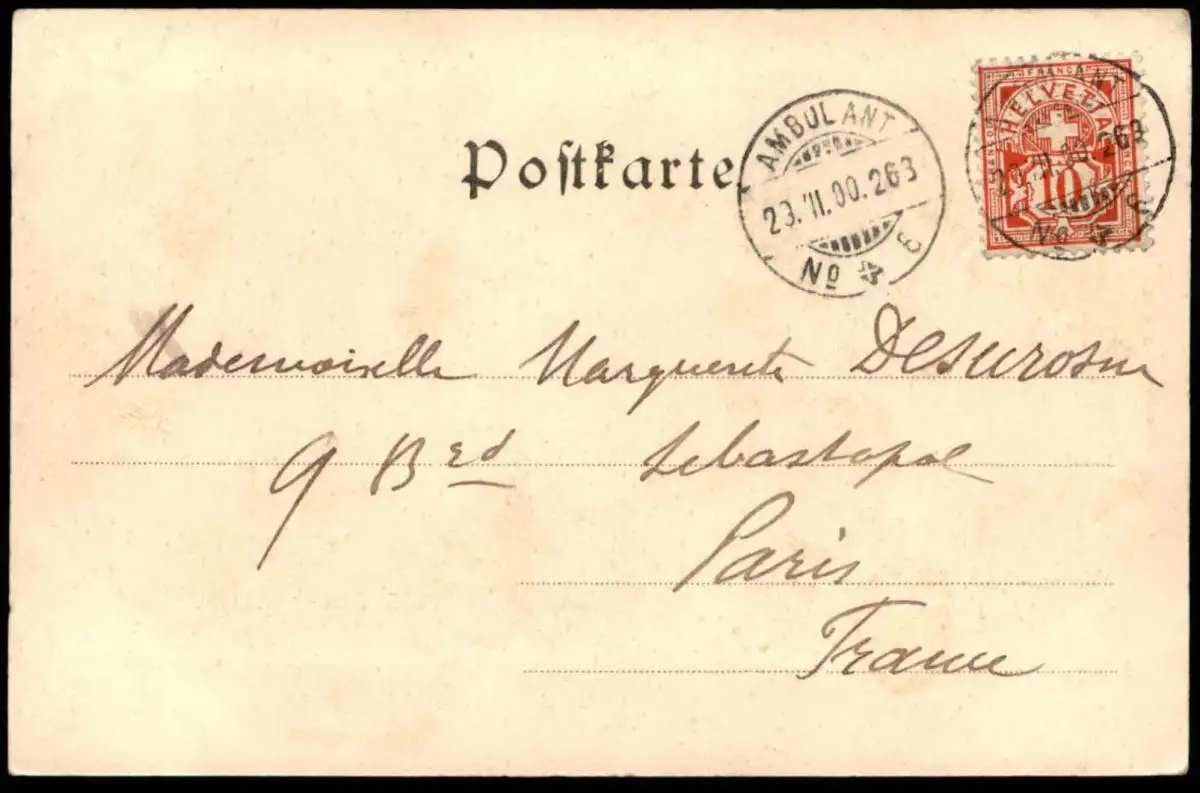 Postkarte
AMBULANT
23.VII.00.263
No 3
FRANCO
HELVETIA
10
Mademoiselle Marguerite
9 Bd Sebastopol
Paris
France